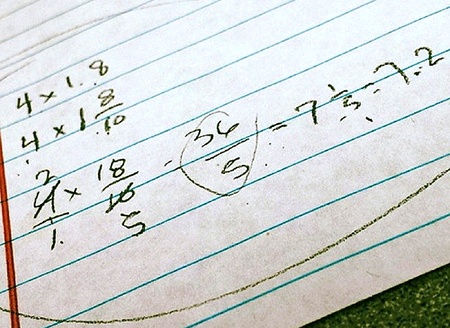 4 × 1.8
4 × 1 8/10
2
4/1 × 18/10 = 36/5 = 7 1/5 = 7.2
5